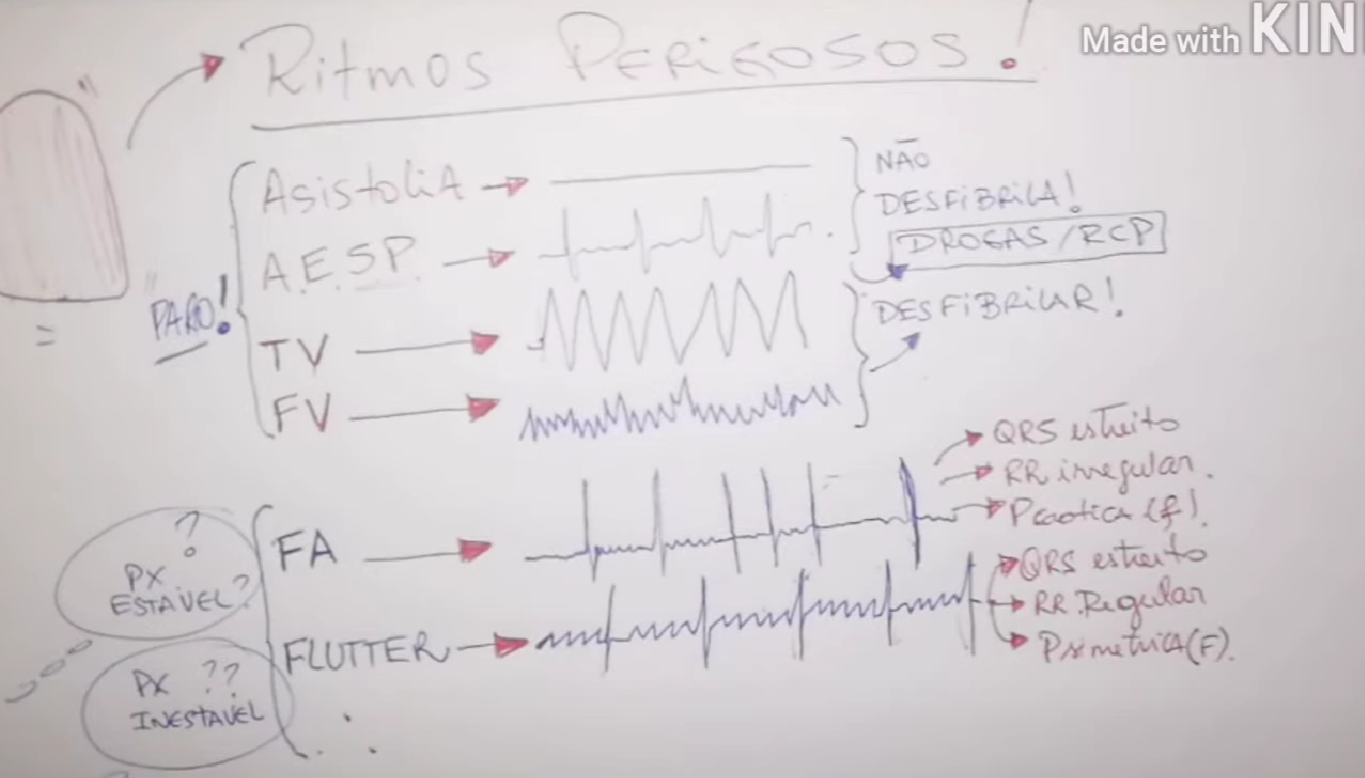 Made with KIN
RITMOS PERIGOSOS!
ASISTOLIA
A.E.SP.
TV
FV
PARO!
NÃO
DESFIBRILA!
DROGAS/RCP
DESFIBRILAR!
FA
QRS estreito
RR irregular.
P caotica (f).
FLUTTER
QRS estreito
RR Regular
P simetrica (F).
?
PX
ESTÁVEL?
PX ??
INESTAVEL